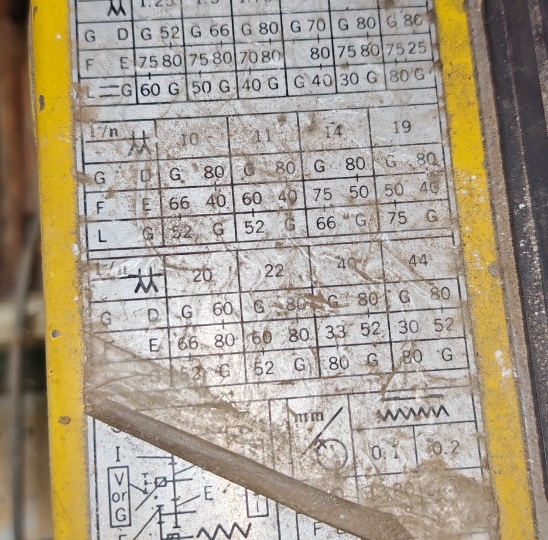 1.25 1.5
G D G 52 G 66 G 80 G 70 G 80 G 80
F E 75 80 75 80 70 80 80 75 80 75 25
L G 60 G 50 G 40 G G 40 30 G 80 G
1"/n 10 11 14 19
G D G 80 G 80 G 80 G 80
F E 66 40 60 40 75 50 50 40
L G 52 G 52 G 66 G 75 G
20 22 40 44
G D G 60 G 80 G 80 G 80
E 66 80 60 80 33 52 30 52
52 G 52 G 80 G 80 G
mm
0.1 0.2
I
V
or
G
E
I
F